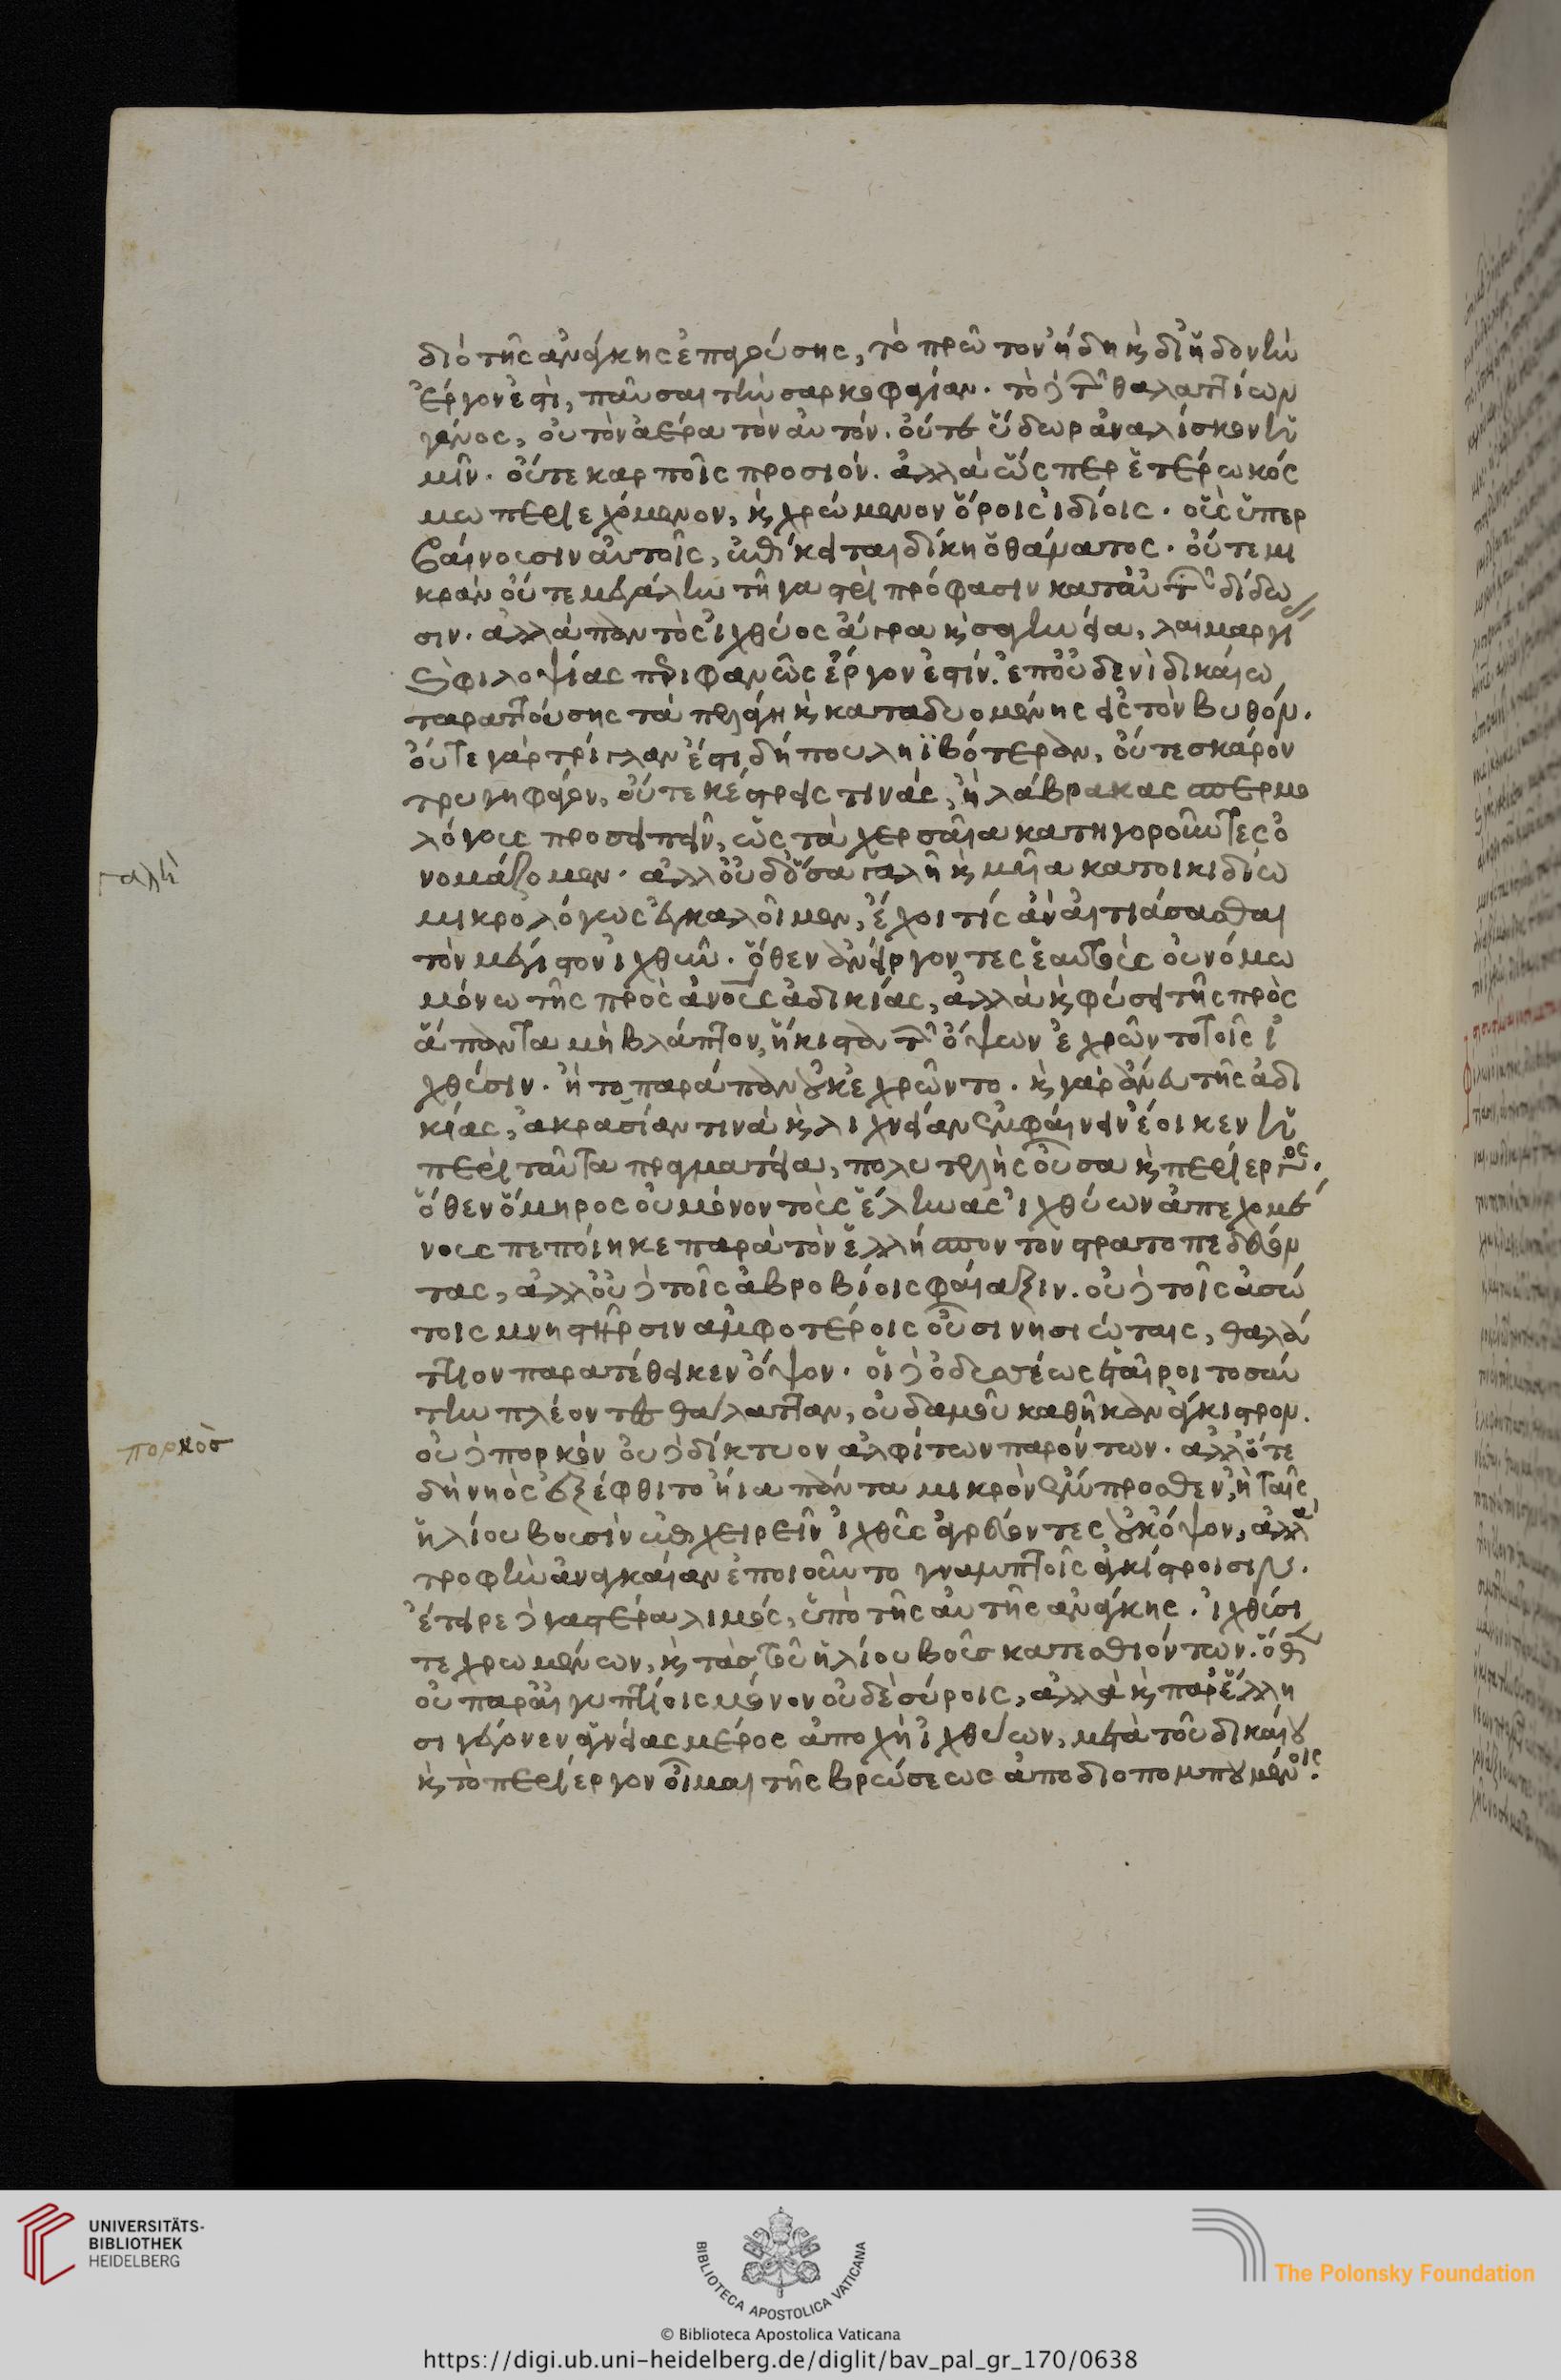 διὸ τῆς ἀνάγκης ἐπαγούσης, τὸ πρῶτον ἤδη καὶ δι' ἡδονὴν
ἔργον ἐστὶ, παῦσαι τὴν σαρκοφαγίαν. τὸ δὲ τῶν θαλαττίων
γένος, οὐ τὸν ἀέρα τὸν αὐτόν. οὔτε ὕδωρ ἀναλίσκον ἡ
μῖν. οὔτε καρποῖς προσιόν. ἀλλὰ ὥς περ ἑτέρω κόσ
μω περιεχόμενον, καὶ χρώμενον ὅροις ἰδίοις. οὓς ὑπερ
βαίνουσιν αὐτοῖς, ἐπίκειται δίκη ὁ θάνατος. οὔτε μι
κρὰν οὔτε μεγάλην τῆ γαστρὶ πρόφασιν κατ' αὐτῶν δίδω
σιν. ἀλλὰ παντὸς ἰχθύος ἄγρα καὶ σαγηνεία, λαιμαργί
ας φιλοψίας περιφανῶς ἔργον ἐστίν. ἐπ' οὐδενὶ δικαίω
ταραττούσης τὰ πελάγη καὶ καταδυομένης εἰς τὸν βυθόν.
οὔτε γὰρ τρίγλαν ἔστι δήπου ληϊβότεραν, οὔτε σκάρον
τρυγηφάγον, οὔτε κέστρεις τινάς, ἢ λάβρακας σπερμο
λόγους προσειπεῖν, ὡς τὰ χερσαῖα κατηγοροῦντες ὀ
νομάζομεν. ἀλλ' οὐδ' ὅσα γαλῆ καὶ μυῖα κατοικιδίω
μικρολόγως ἐγκαλοῖμεν, ἔχοι τίς ἂν αἰτιάσασθαι
τὸν μέγιστον ἰχθῦν. ὅθεν ἀνείργοντες ἑαυτοὺς οὐ νόμω
μόνω τῆς πρὸς ἀνους ἀδικίας, ἀλλὰ καὶ φύσει τῆς πρὸς
ἅπαντα μὴ βλάπτον, ἥκιστα τῶν ὄψων ἐχρῶντο τοῖς ἰ
χθύσιν. ἢ τοπαράπαν οὐκ ἐχρῶντο. καὶ γὰρ ἄνευ τῆς ἀδι
κίας, ἀκρασίαν τινὰ καὶ λιχνείαν ἐμφαίνειν ἔοικεν ἡ
περὶ ταῦτα πραγματεία, πολυτελὴς οὖσα καὶ περίεργος.
ὅθεν ὅμηρος οὐ μόνον τοὺς ἕλληνας ἰχθύων ἀπεχομέ
νους πεποίηκε παρὰ τὸν ἑλλήσποντον στρατοπεδεύον
τας, ἀλλ' οὐδὲ τοῖς ἁβροβίοις φαίαξιν. οὐδὲ τοῖς ἀσώ
τοις μνηστῆρσιν ἀμφοτέροις οὖσι νησιώταις, θαλά
ττιον παρατέθεικεν ὄψον. οἱ δὲ ὀδυσσέως ἑταῖροι τοσαύ
την πλέοντες θάλατταν, οὐδαμοῦ καθῆκαν ἄγκιστρον.
οὐδὲ πορκὸν οὐδὲ δίκτυον ἀλφίτων παρόντων. ἀλλ' ὅτε
δὴ νηὸς ἐξέφθιτο ἤια πάντα μικρὸν ἔμπροσθεν, ἢ ταῖς
ἡλίου βουσὶν ἐπιχειρεῖν ἰχθῦς ἀγρεύοντες οὐκ ὄψον, ἀλλὰ
τροφὴν ἀναγκαίαν ἐποιοῦντο γναμπτοῖς ἀγκίστροισιν.
ἔτειρε δὲ γαστέρα λιμός, ὑπὸ τῆς αὐτῆς ἀνάγκης. ἰχθύσι
τε χρωμένων, καὶ τὰς τοῦ ἡλίου βοῦς κατεσθιόντων. ὅθεν
οὐ παρ' αἰγυπτίοις μόνον οὐδὲ σύροις, ἀλλὰ καὶ παρ' ἕλλη
σι γέγονεν ἁγνείας μέρος ἀποχὴ ἰχθύων, μετὰ τοῦ δικαίου
καὶ τὸ περίεργον οἶμαι τῆς βρώσεως ἀποδιοπομπουμένοις.
γαλῆ
πορκὸς
UNIVERSITÄTS-
BIBLIOTHEK
HEIDELBERG
BIBLIOTECA APOSTOLICA VATICANA
The Polonsky Foundation
© Biblioteca Apostolica Vaticana
https://digi.ub.uni-heidelberg.de/diglit/bav_pal_gr_170/0638